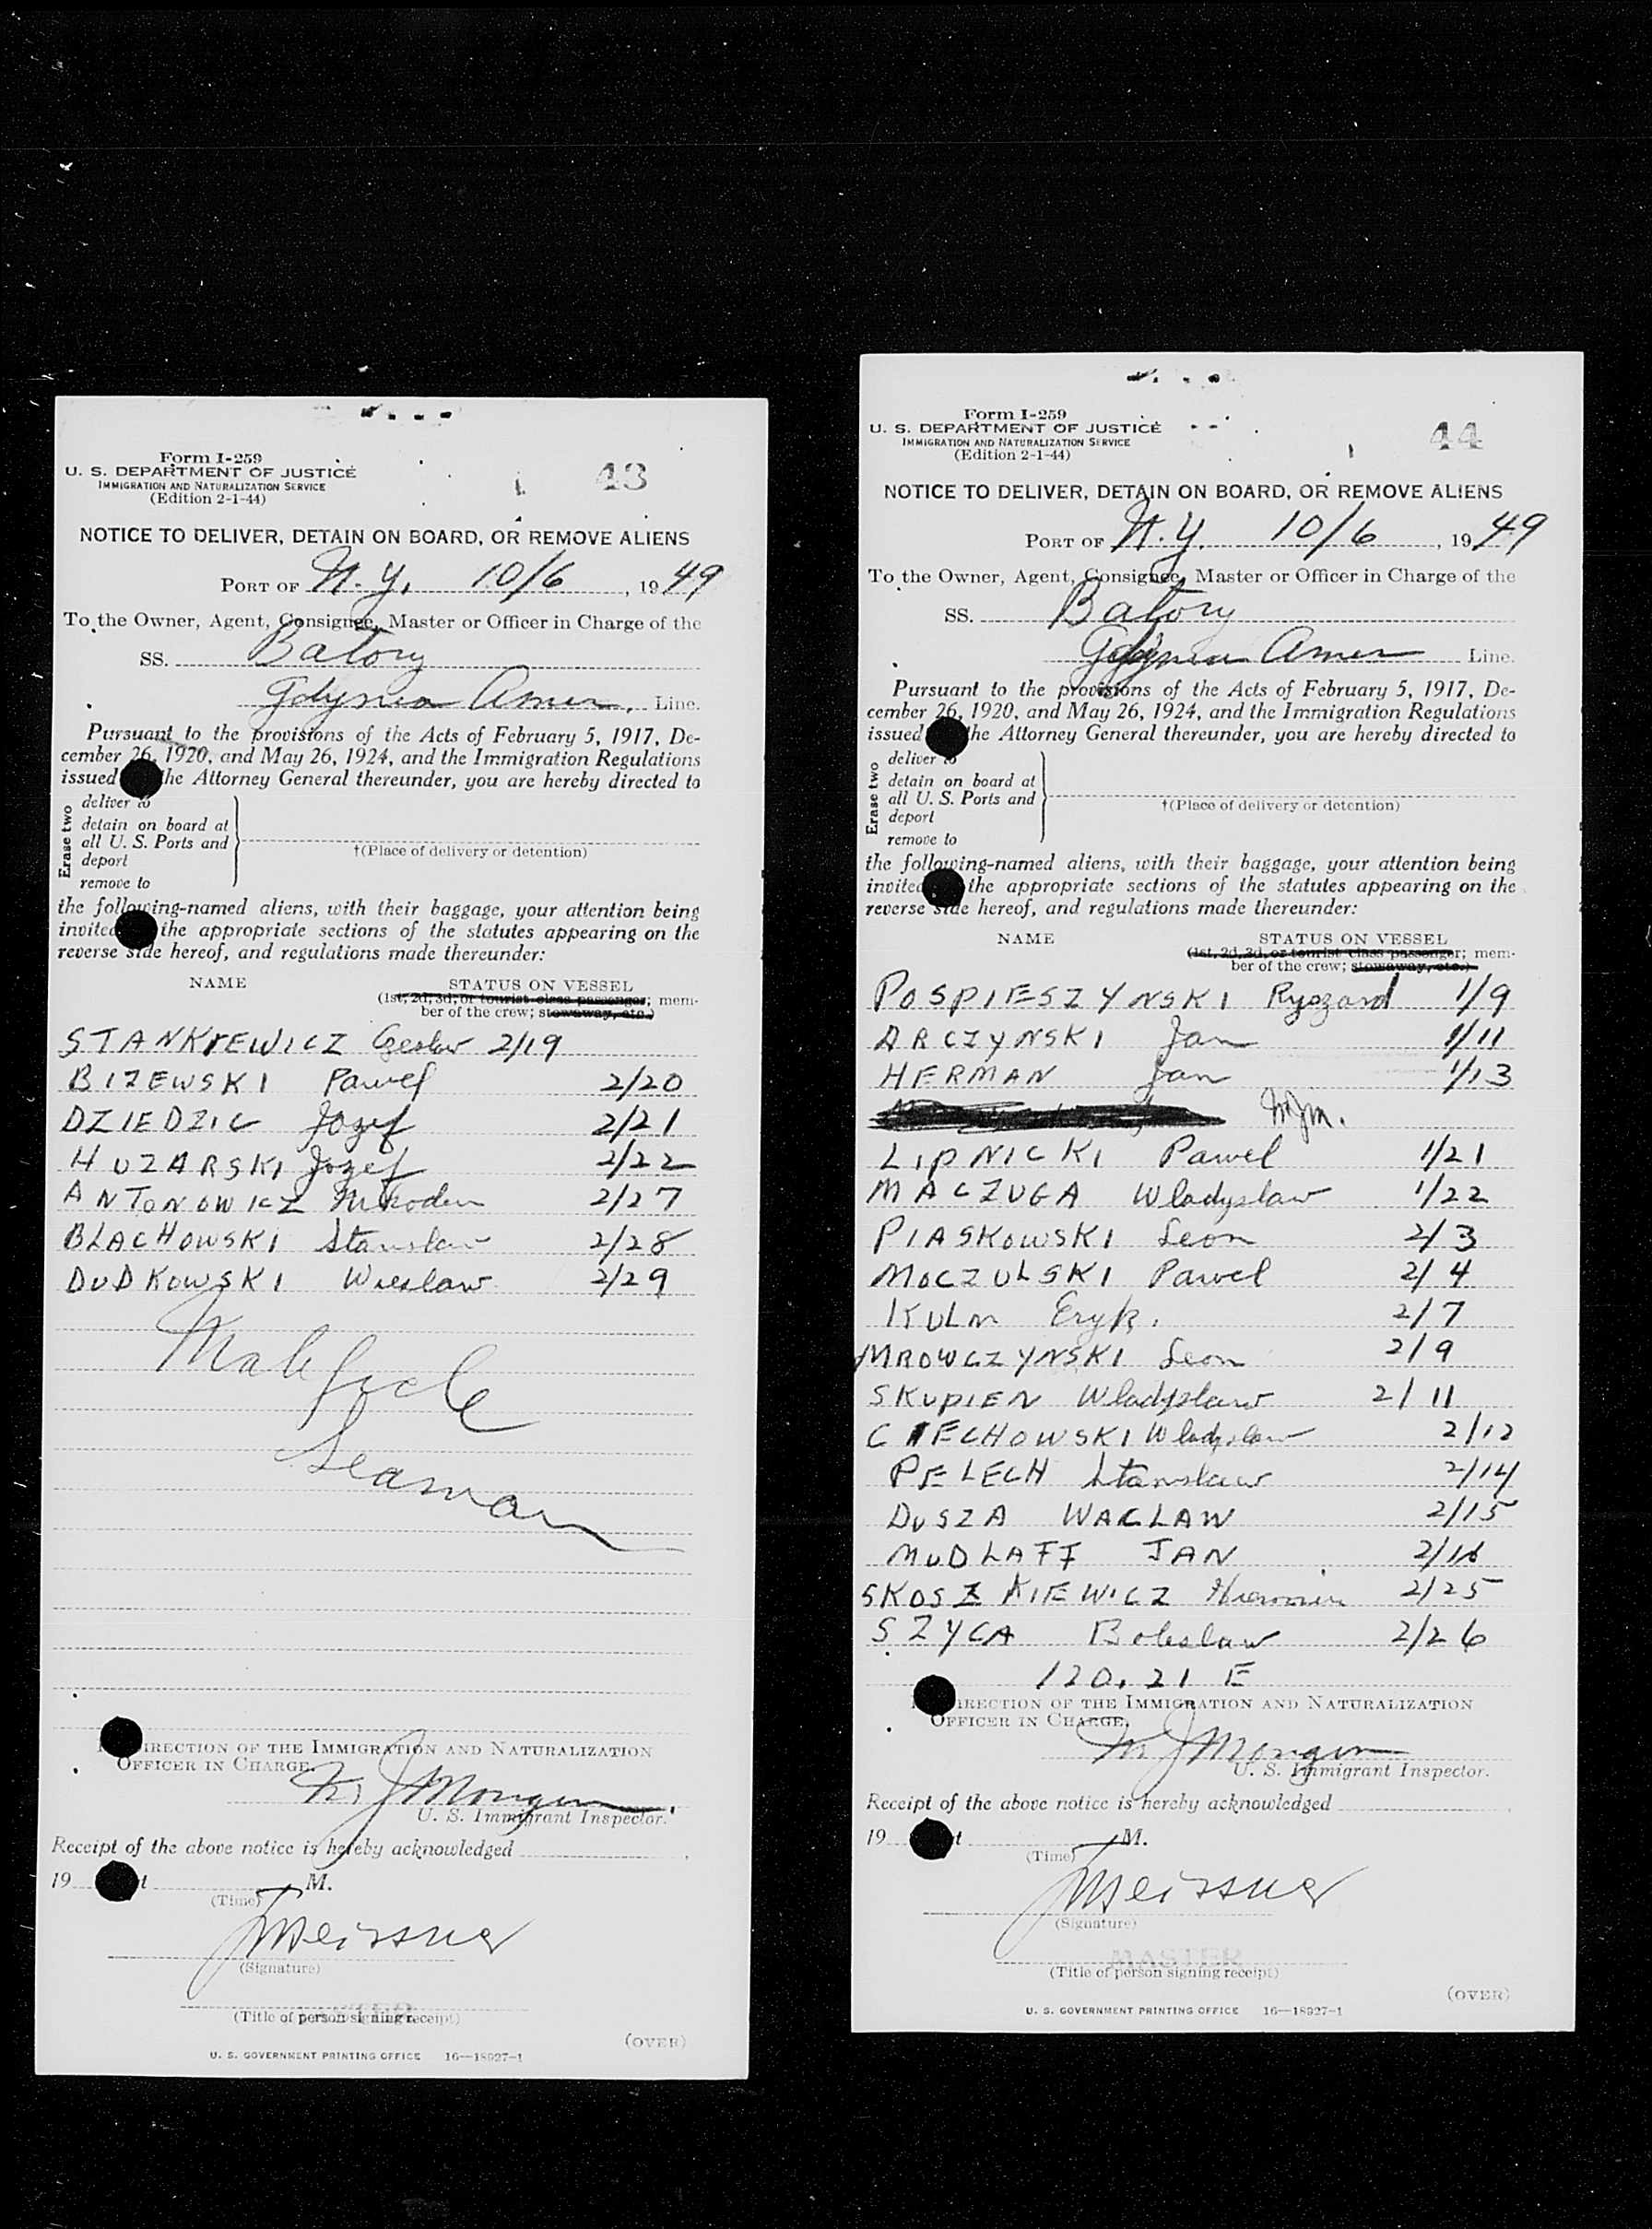 Form I-259
U. S. DEPARTMENT OF JUSTICE
IMMIGRATION AND NATURALIZATION SERVICE
(Edition 2-1-44)
43
NOTICE TO DELIVER, DETAIN ON BOARD, OR REMOVE ALIENS
PORT OF N.Y. 10/6, 1949
To the Owner, Agent, Consignee, Master or Officer in Charge of the
SS. Batory
Gdynia Amer. Line.
Pursuant to the provisions of the Acts of February 5, 1917, De-
cember 26, 1920, and May 26, 1924, and the Immigration Regulations
issued the Attorney General thereunder, you are hereby directed to
Erase two
deliver to
detain on board at
all U. S. Ports and
deport
remove to
†(Place of delivery or detention)
the following-named aliens, with their baggage, your attention being
invited the appropriate sections of the statutes appearing on the
reverse side hereof, and regulations made thereunder:
NAME STATUS ON VESSEL
(1st, 2d, 3d, or tourist class passenger; mem-
ber of the crew; stowaway, etc.)
STANKIEWICZ Czeslaw 2/19
BIZEWSKI Pawel 2/20
DZIEDZIC Jozef 2/21
HUZARSKI Jozef 2/22
ANTONOWICZ 2/27
BLACHOWSKI Stanislaw 2/28
DUDKOWSKI Wieslaw 2/29
Mala fide
Seaman
DIRECTION OF THE IMMIGRATION AND NATURALIZATION
OFFICER IN CHARGE.
U. S. Immigrant Inspector.
Receipt of the above notice is hereby acknowledged
19 t M.
(Time)
Meissner
(Signature)
(Title of person signing receipt)
(OVER)
U. S. GOVERNMENT PRINTING OFFICE 16—18927-1
Form I-259
U. S. DEPARTMENT OF JUSTICE
IMMIGRATION AND NATURALIZATION SERVICE
(Edition 2-1-44)
44
NOTICE TO DELIVER, DETAIN ON BOARD, OR REMOVE ALIENS
PORT OF N.Y. 10/6, 1949
To the Owner, Agent, Consignee, Master or Officer in Charge of the
SS. Batory
Gdynia Amer Line.
Pursuant to the provisions of the Acts of February 5, 1917, De-
cember 26, 1920, and May 26, 1924, and the Immigration Regulations
issued the Attorney General thereunder, you are hereby directed to
Erase two
deliver to
detain on board at
all U. S. Ports and
deport
remove to
†(Place of delivery or detention)
the following-named aliens, with their baggage, your attention being
invited the appropriate sections of the statutes appearing on the
reverse side hereof, and regulations made thereunder:
NAME STATUS ON VESSEL
(1st, 2d, 3d, or tourist class passenger; mem-
ber of the crew; stowaway, etc.)
POSPIESZYNSKI Ryszard 1/9
ARCZYNSKI Jan 1/11
HERMAN Jan 1/13
LIPNICKI Pawel 1/21
MACZUGA Wladyslaw 1/22
PIASKOWSKI Leon 2/3
MOCZULSKI Pawel 2/4
KULM Eryk. 2/7
MROWCZYNSKI Leon 2/9
SKUPIEN Wladyslaw 2/11
CIECHOWSKI Wladyslaw 2/12
PELECH Stanislaw 2/14
DUSZA WACLAW 2/15
MUDLAFF JAN 2/16
SKOSZKIEWICZ 2/25
SZYCA Boleslaw 2/26
120.21 E
DIRECTION OF THE IMMIGRATION AND NATURALIZATION
OFFICER IN CHARGE.
U. S. Immigrant Inspector.
Receipt of the above notice is hereby acknowledged
19 t M.
(Time)
Meissner
(Signature)
MASTER
(Title of person signing receipt)
(OVER)
U. S. GOVERNMENT PRINTING OFFICE 16—18927-1